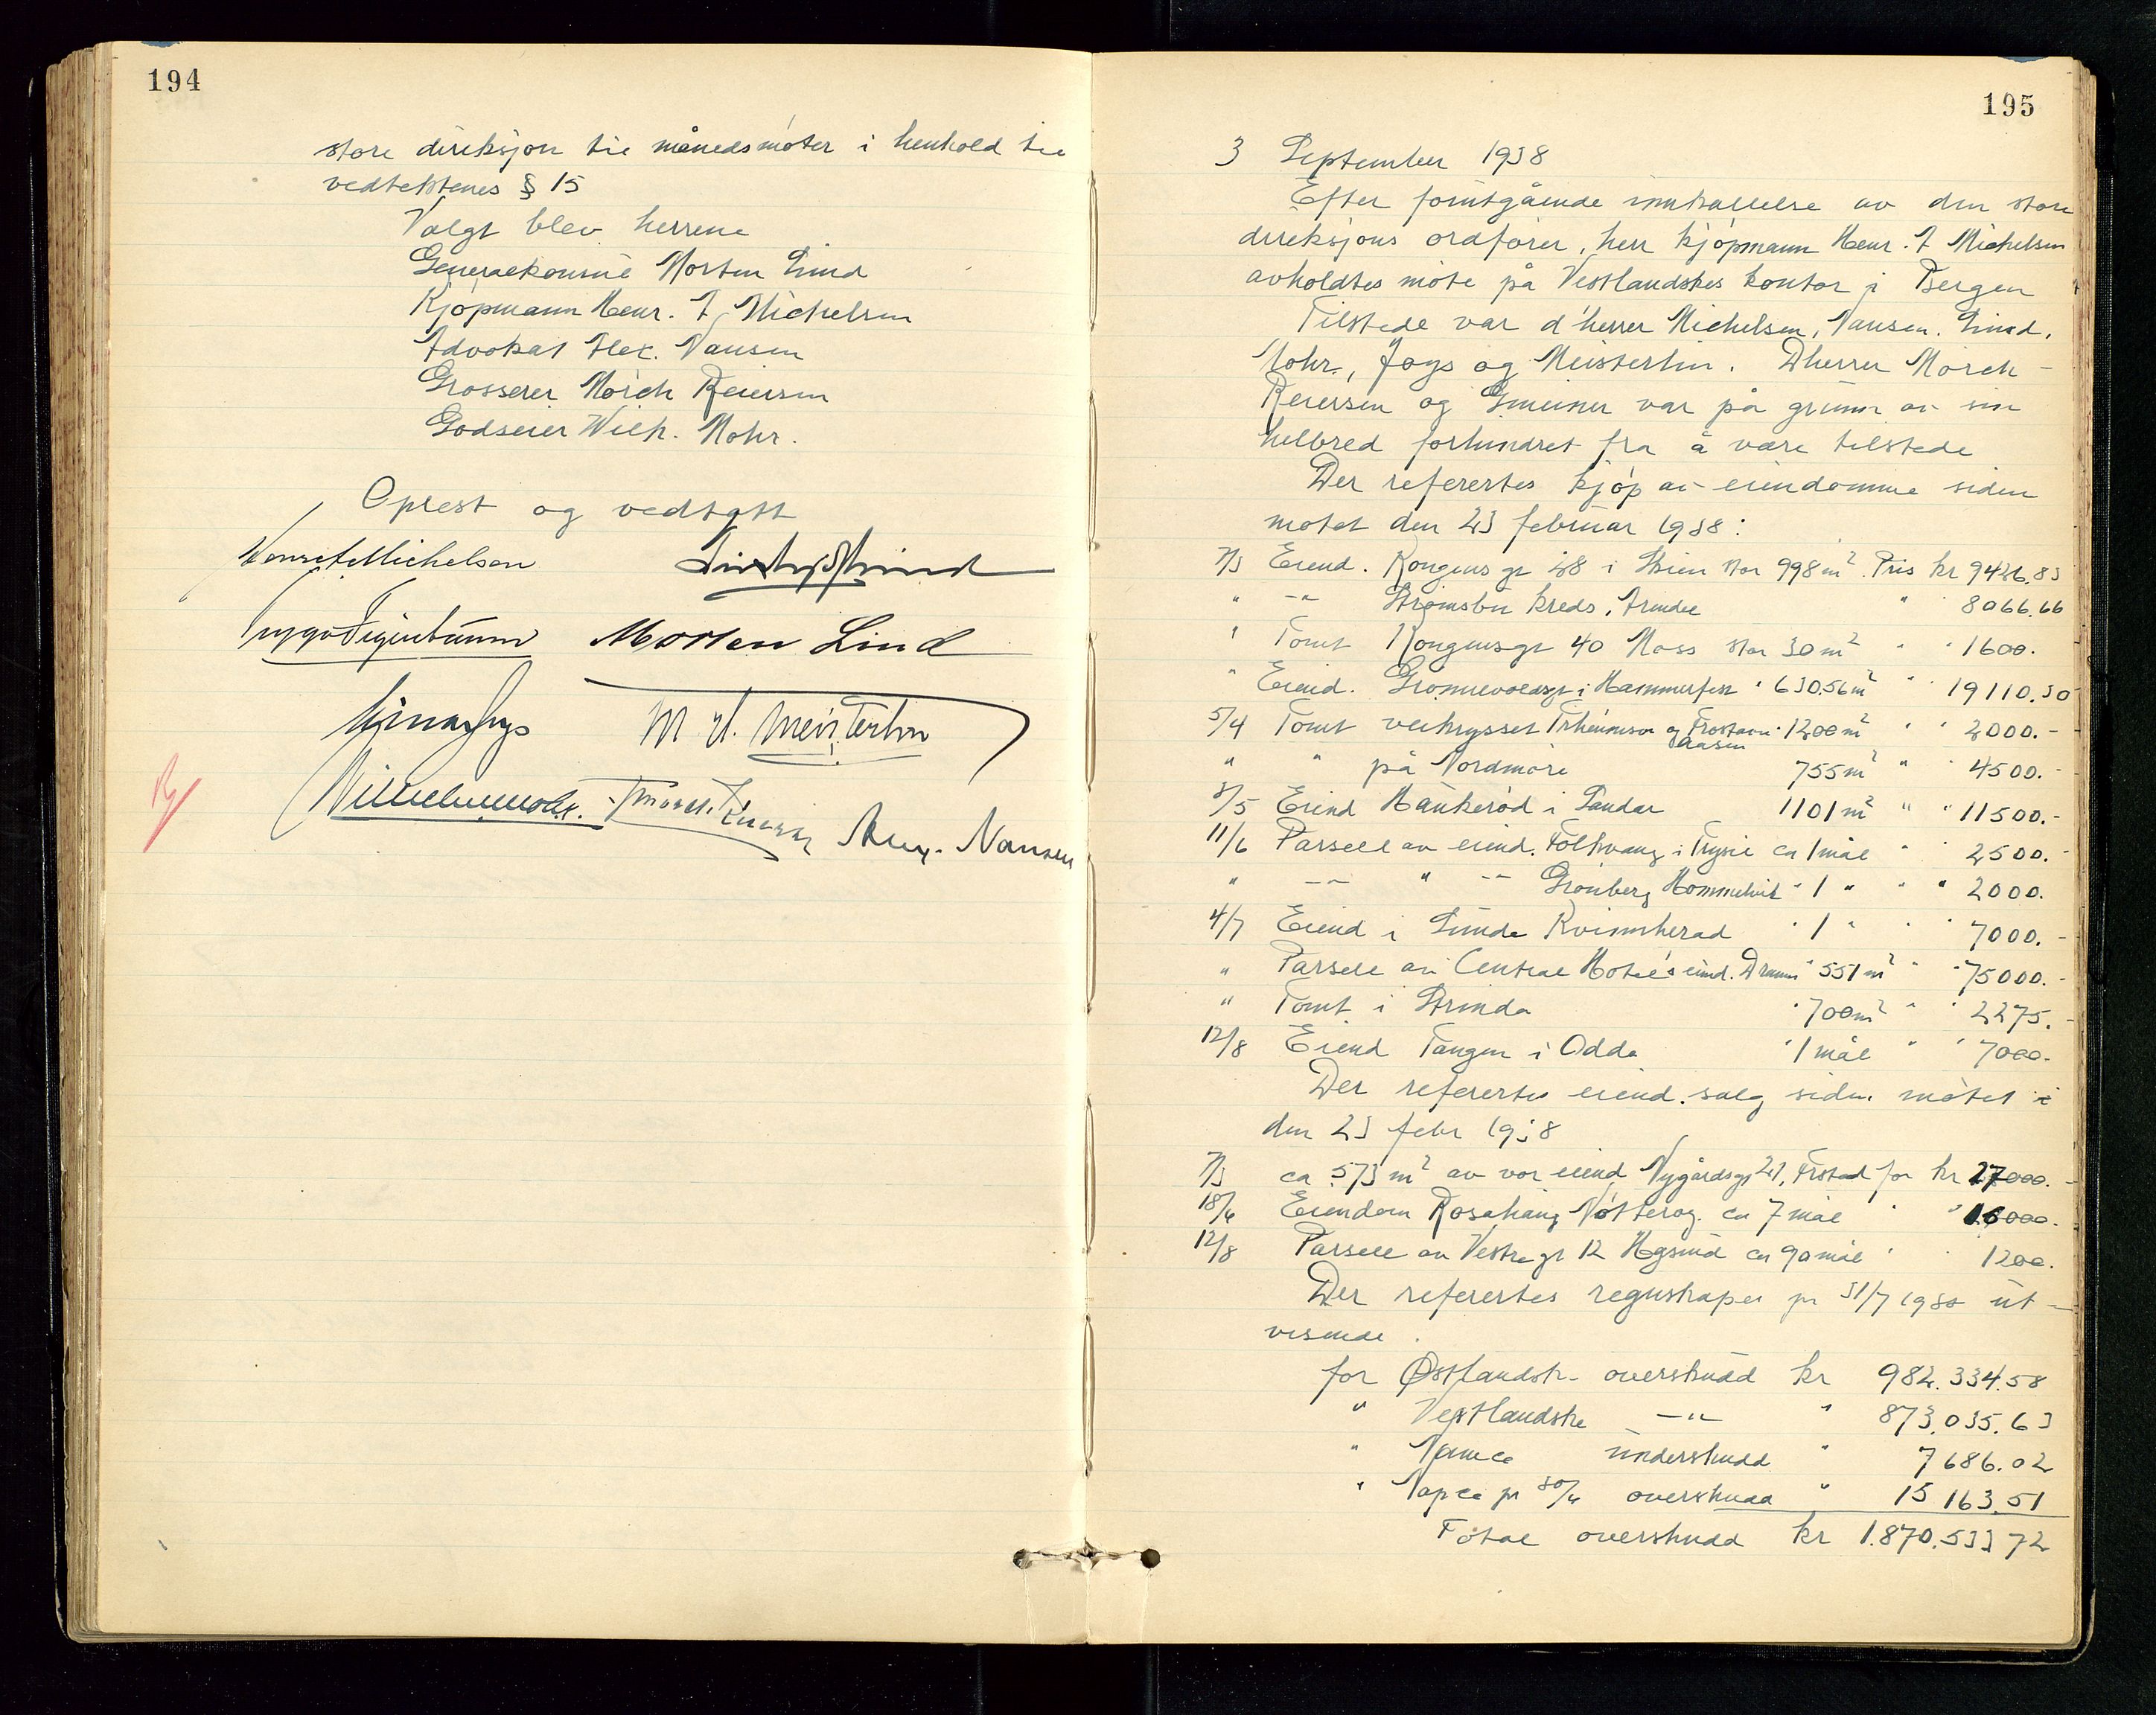 194
store direksjon til månedsmøter i henhold til
vedtektenes § 15
Valgt blev herrene
Generalkonsul Morten Lind
Kjøpmann Henr. A Michelsen
Advokat Alex. Nansen
Grosserer Mørch Reiersen
Godseier Wilh. Mohr.
Oplest og vedtatt
Henr A Michelsen
Morten Lind
M. A. Meisterlin
Wilhelm Mohr. Mørch Reiersen Alex. Nansen
195
3 September 1938
Efter forutgående innkallelse av den store
direksjons ordfører, herr kjøpmann Henr. A Michelsen
avholdtes møte på Vestlandskes kontor i Bergen
Tilstede var d'herrer Michelsen, Nansen, Lind,
Mohr, Joys og Meisterlin. Dherrer Mørch-
Reiersen og Gmeiner var på grunn av sin
helbred forhindret fra å være tilstede
Der refertes kjøp av eiendomme siden
møtet den 23 februar 1938:
7/3 Eiend. Kongens gt 38 i Skien stor 998 m² Pris kr 9426.83
" -"- Strømsbu kreds, Arendal " 8066.66
" Tomt Kongensgt 40 Moss stor 30 m² " " 1600.
" Eiend. Grønnevoldsgt i Hammerfest " 630.56 m² " " 19110.30
5/4 Tomt veikrysset Trheimsvn og " 1200 m² " " 2000.-
Aasen
" " på Nordmøre 755 m² " " 4500.-
3/5 Eiend Haukerød i Sandar 1101 m² " " 11500.-
11/6 Parsell av eiend. Folkvang i Trysil ca 1 mål " " 2500.-
" -"- " -"- Grønberg Hommelvik " 1 " " " 2000.
4/7 Eiend i Sunde Kvinnherad " 1 " " " 7000.-
" Parsell av Central Hotel's eiend. Dramm " 551 m² " " 75000.-
" Tomt i Strinda " 700 m² " " 2275.-
12/8 Eiend Tangen i Odda " 1 mål " " 7000.-
Der refertes eiend. salg siden møtet i
den 23 febr 1938
7/3 ca 573 m² av vor eiend Nygårdsgt 21, Frstad for kr 27000.-
18/6 Eiendom Rosahaug Nøtterøy. ca 7 mål " " 16000.
12/8 Parsell av Vestre gt 12 Høgsund ca 90 mål " " 1200.
Der refertes regnskapet pr 31/7 1938 ut-
visende.
for Østlandske overskudd kr 982.334.58
" Vestlandske -"- " 873.035.63
" Namca underskudd " 7686.02
" Napca pr 30/6 overskudd " 15163.51
Total overskudd kr 1.870.533 72